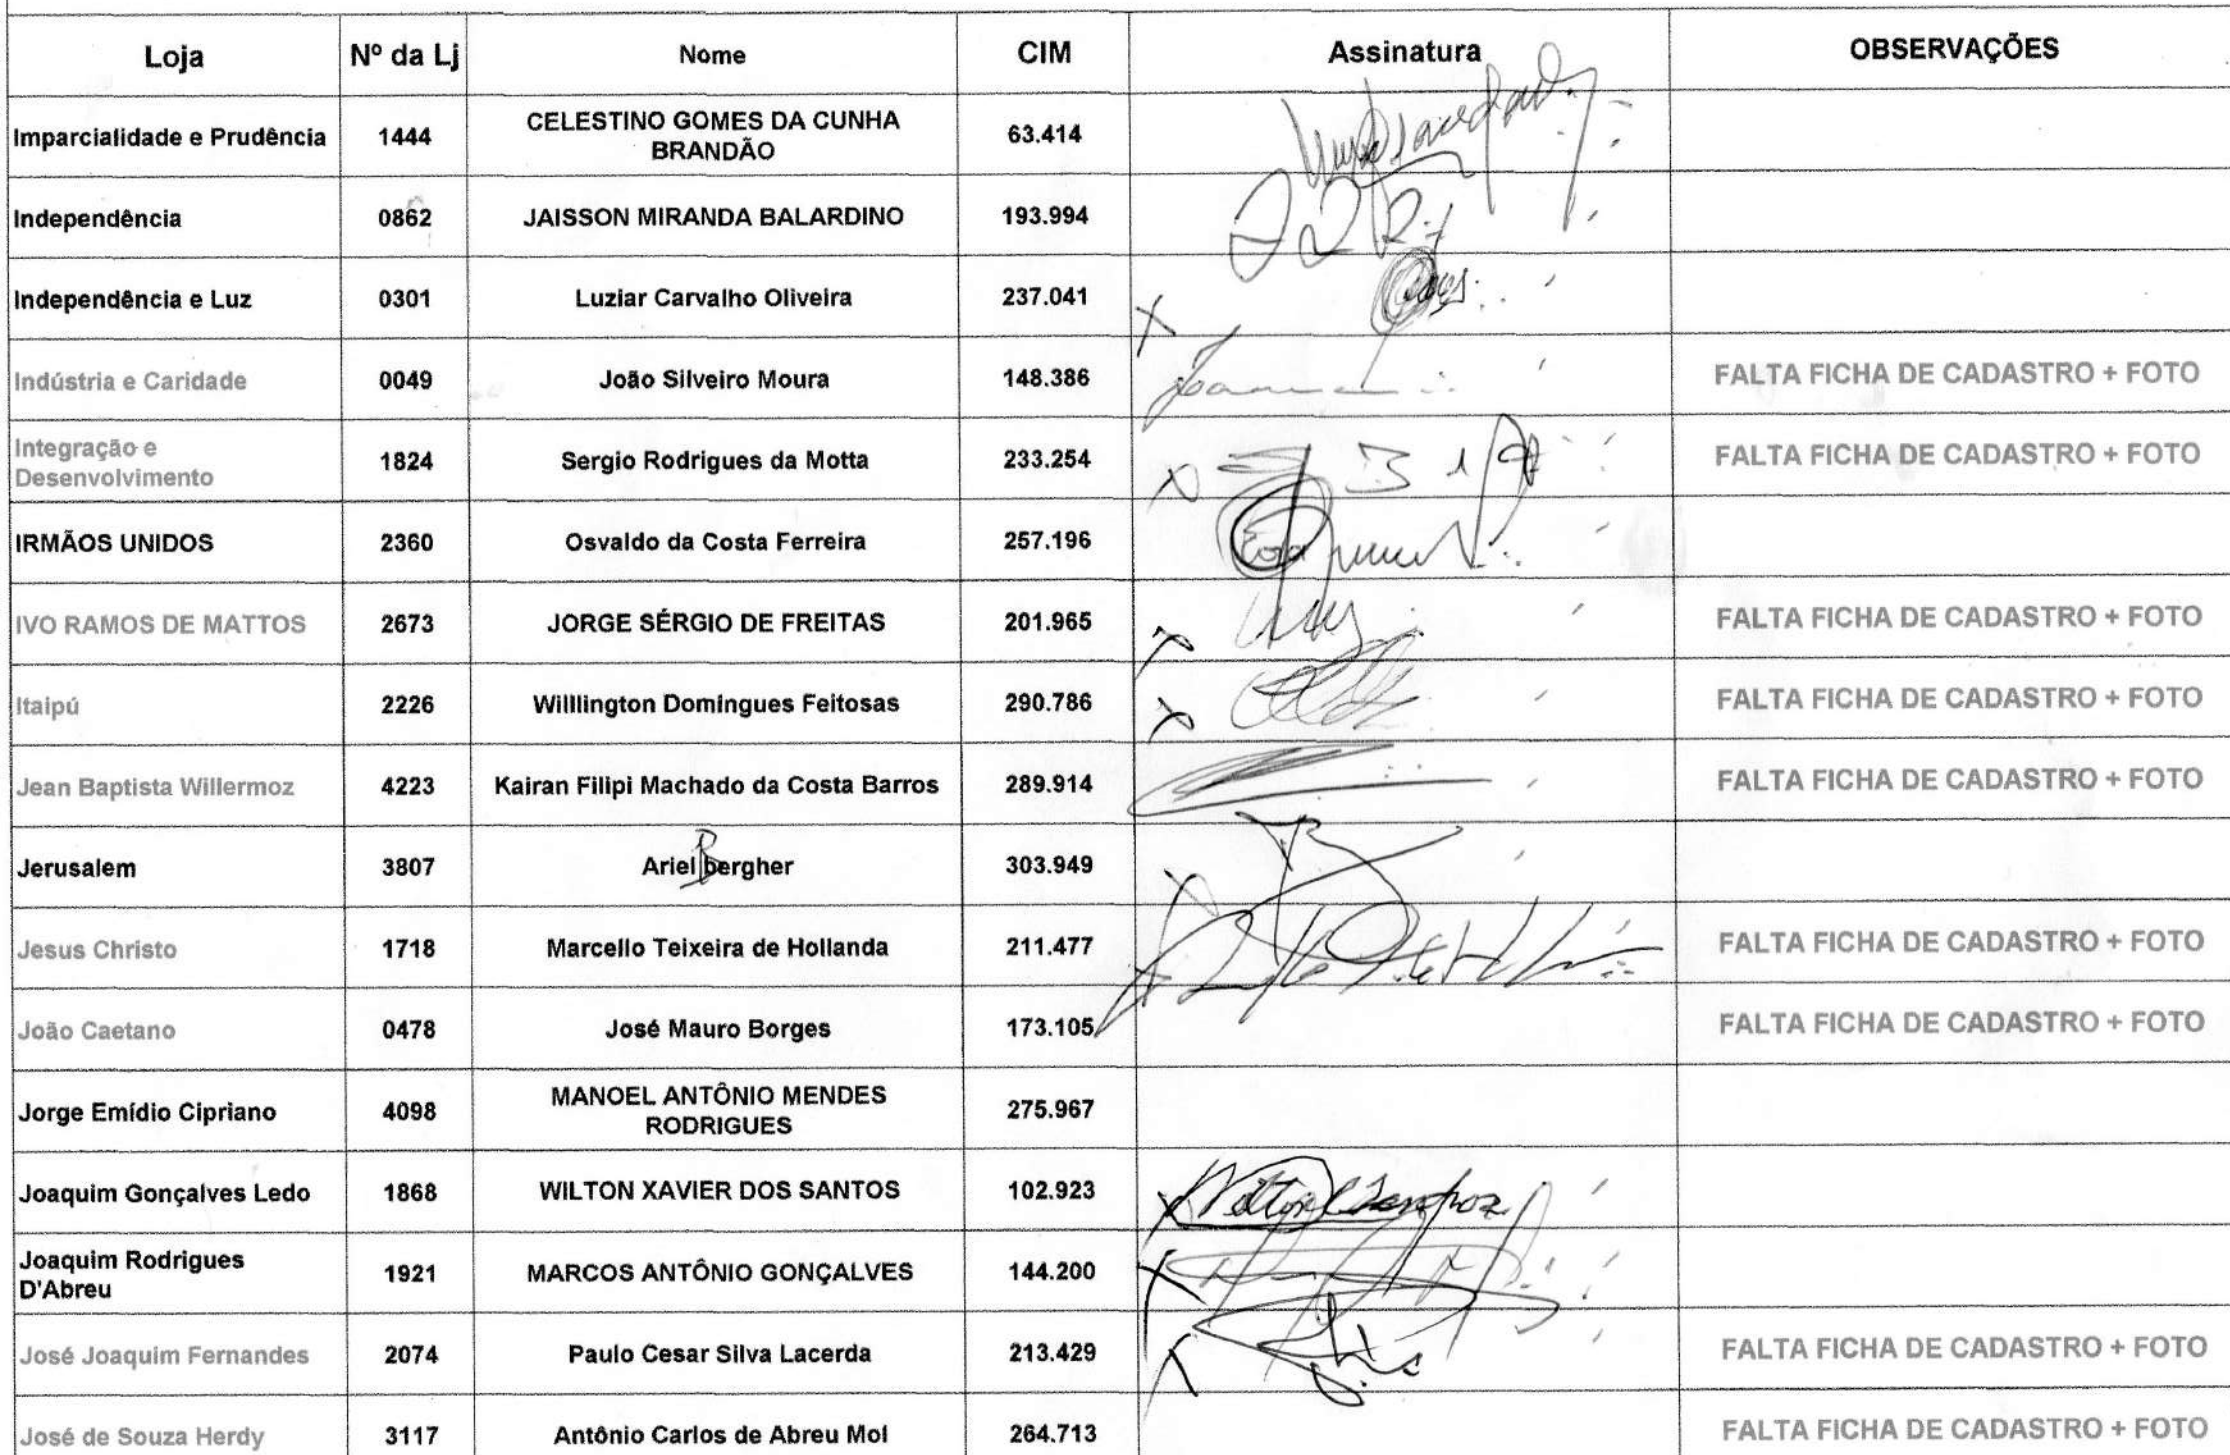 Loja Nº da Lj Nome CIM Assinatura OBSERVAÇÕES
Imparcialidade e Prudência 1444 CELESTINO GOMES DA CUNHA BRANDÃO 63.414
Independência 0862 JAISSON MIRANDA BALARDINO 193.994
Independência e Luz 0301 Luziar Carvalho Oliveira 237.041
Indústria e Caridade 0049 João Silveiro Moura 148.386 FALTA FICHA DE CADASTRO + FOTO
Integração e Desenvolvimento 1824 Sergio Rodrigues da Motta 233.254 FALTA FICHA DE CADASTRO + FOTO
IRMÃOS UNIDOS 2360 Osvaldo da Costa Ferreira 257.196
IVO RAMOS DE MATTOS 2673 JORGE SÉRGIO DE FREITAS 201.965 FALTA FICHA DE CADASTRO + FOTO
Itaipú 2226 Willlington Domingues Feitosas 290.786 FALTA FICHA DE CADASTRO + FOTO
Jean Baptista Willermoz 4223 Kairan Filipi Machado da Costa Barros 289.914 FALTA FICHA DE CADASTRO + FOTO
Jerusalem 3807 Ariel Bergher 303.949
Jesus Christo 1718 Marcello Teixeira de Hollanda 211.477 FALTA FICHA DE CADASTRO + FOTO
João Caetano 0478 José Mauro Borges 173.105 FALTA FICHA DE CADASTRO + FOTO
Jorge Emídio Cipriano 4098 MANOEL ANTÔNIO MENDES RODRIGUES 275.967
Joaquim Gonçalves Ledo 1868 WILTON XAVIER DOS SANTOS 102.923
Joaquim Rodrigues D'Abreu 1921 MARCOS ANTÔNIO GONÇALVES 144.200
José Joaquim Fernandes 2074 Paulo Cesar Silva Lacerda 213.429 FALTA FICHA DE CADASTRO + FOTO
José de Souza Herdy 3117 Antônio Carlos de Abreu Mol 264.713 FALTA FICHA DE CADASTRO + FOTO